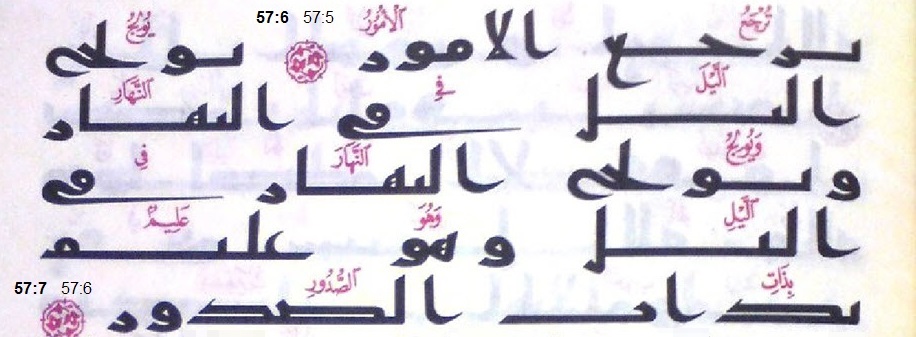 57:6 57:5
تُرْجَعُ ٱلْأُمُورُ يُولِجُ
ترجع الامور يولج
ٱلَّيْلَ فِي ٱلنَّهَارِ
اليل في النهار
وَيُولِجُ ٱلنَّهَارَ فِي
و يولج النهار في
ٱلَّيْلِ وَهُوَ عَلِيمٌ
اليل و هو عليم
بِذَاتِ ٱلصُّدُورِ
57:7 57:6
بذات الصدور